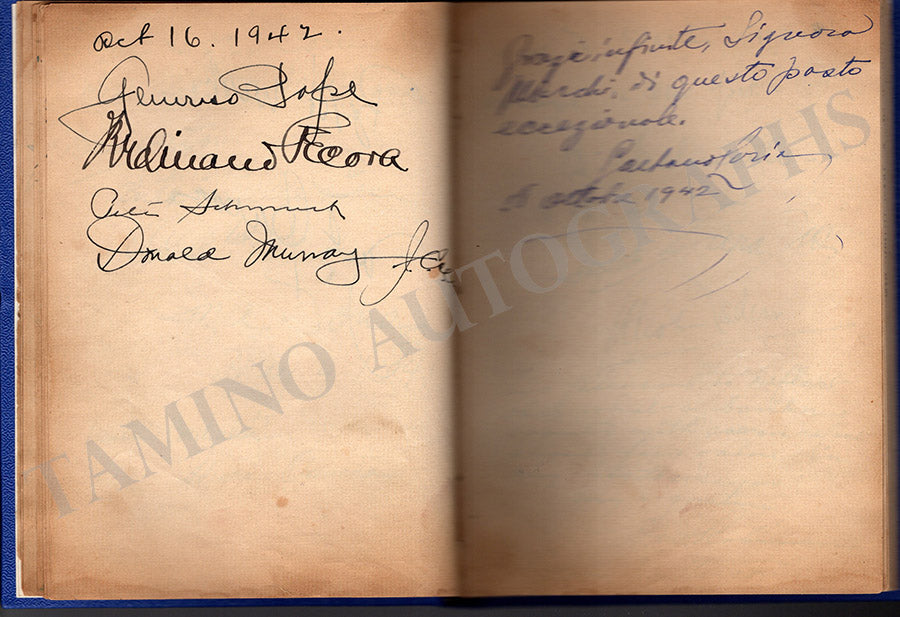 Oct 16. 1942.
Generoso Pope
Ferdinand Pecora
Peter
Donald Murray
Grazie infinite, Signora
Marchi, di questo pasto
eccezionale.
Gaetano
16 ottobre 1942
TAMINO AUTOGRAPHS